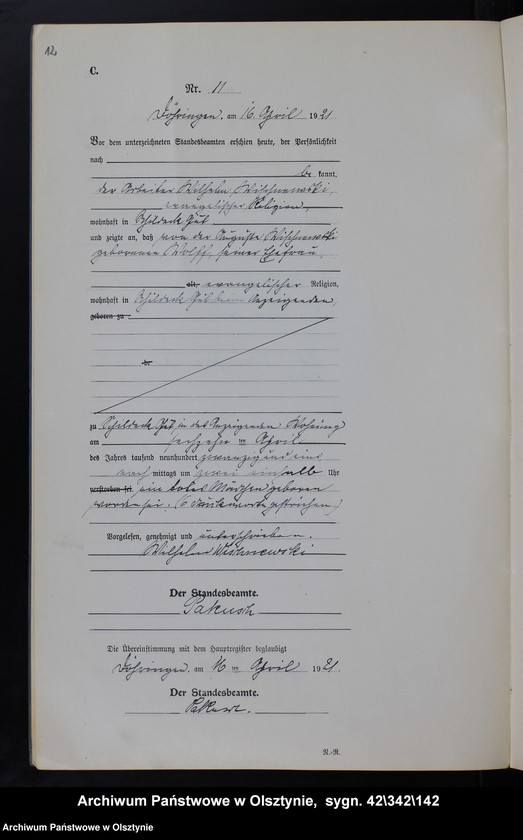 12
C.
Nr. 11
Döhringen, am 16. April 1921
Vor dem unterzeichneten Standesbeamten erschien heute, der Persönlichkeit
nach
be kannt,
der Arbeiter Wilhelm Wischnewski,
evangelischer Religion,
wohnhaft in Schildeck Gut
und zeigte an, daß von der Auguste Wischnewski
geborenen Wolff, seiner Ehefrau,
alt, evangelischer Religion,
wohnhaft in Schildeck Gut beim Anzeigenden,
geboren zu
zu Schildeck Gut, in des Anzeigenden Wohnung
am sechzehn ten April
des Jahres tausend neunhundert zwanzig und eins
nach mittags um zwei einhalb Uhr
verstorben sei, ein totes Mädchen geboren
worden sei. (6 Druckworte gestrichen)
Vorgelesen, genehmigt und unterschrieben.
Wilhelm Wischnewski
Der Standesbeamte.
Die Übereinstimmung mit dem Hauptregister beglaubigt
Döhringen, am 16 ten April 1921.
Der Standesbeamte.
N.-R.
Archiwum Państwowe w Olsztynie, sygn. 42\342\142
Archiwum Państwowe w Olsztynie